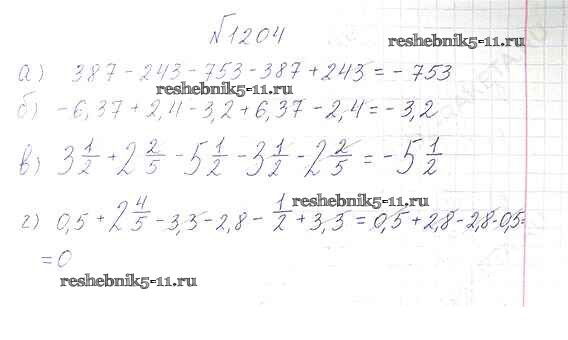 №1204
reshebnik5-11.ru
а) 387 - 243 - 753 - 387 + 243 = - 753
reshebnik5-11.ru
б) -6,37 + 2,4 - 3,2 + 6,37 - 2,4 = - 3,2
в) 3 1/2 + 2 2/5 - 5 1/2 - 3 1/2 - 2 2/5 = - 5 1/2
reshebnik5-11.ru
г) 0,5 + 2 4/5 - 3,3 - 2,8 - 1/2 + 3,3 = 0,5 + 2,8 - 2,8 - 0,5 =
= 0
reshebnik5-11.ru